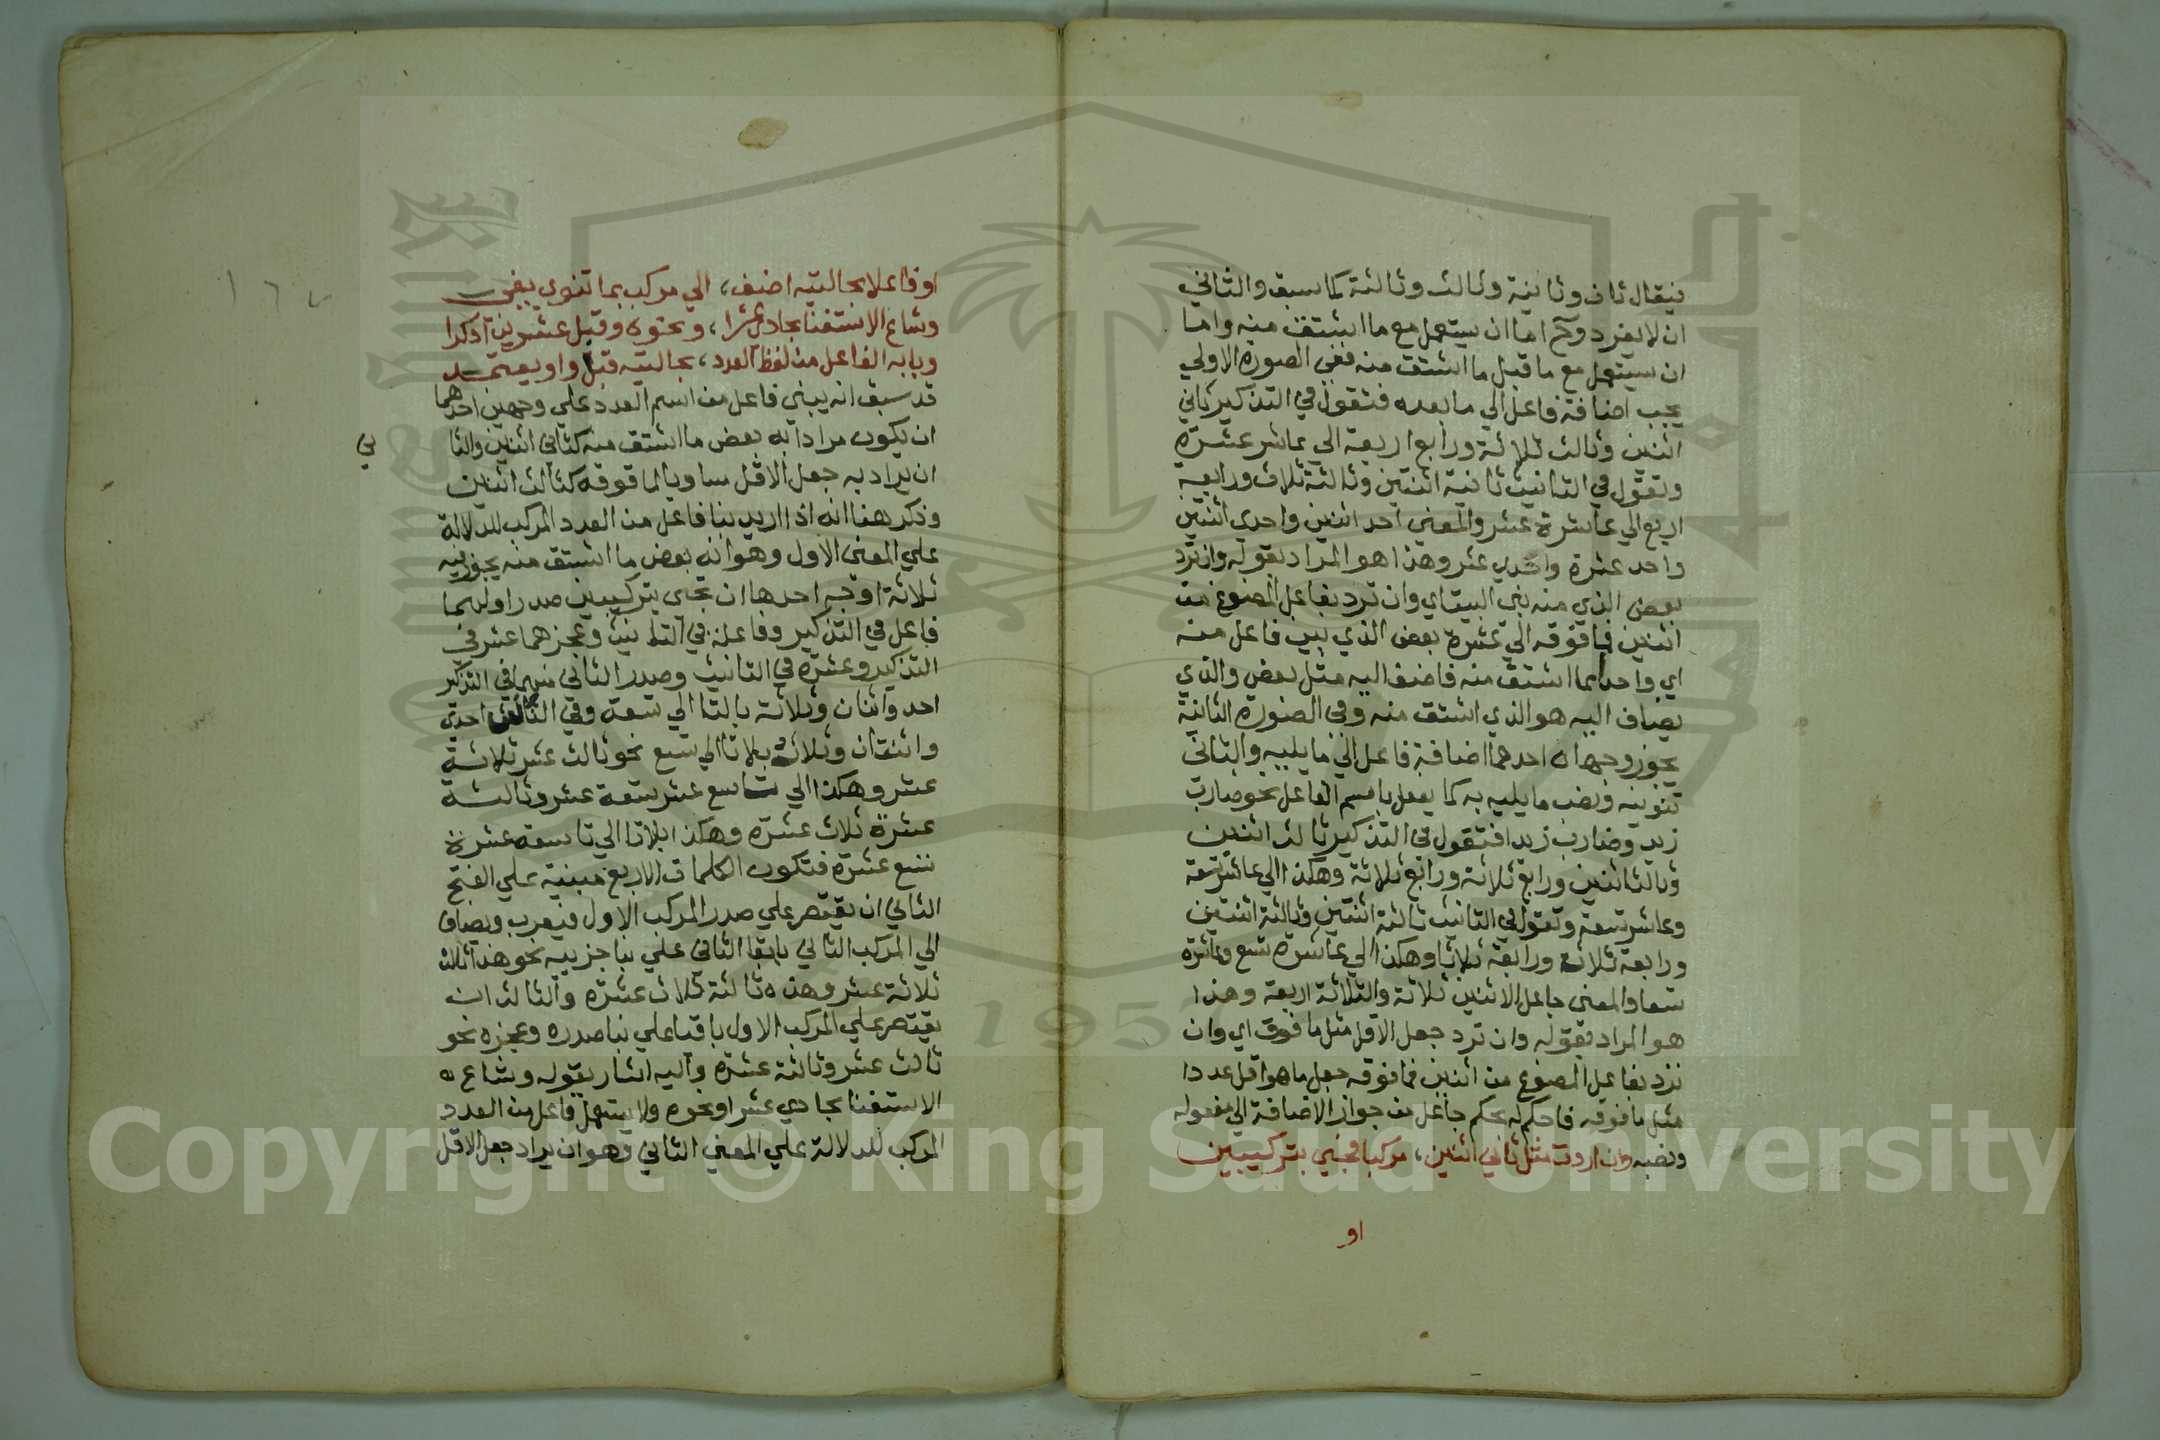 فيقال ثان وثانية وثالث وثالثة كما سبق والثاني
ان لا يفرد وح اما ان يستعمل مع ما اشتق منه واما
ان يستعمل مع ما قبل ما اشتق منه ففي الصورة الاولي
يجب اضافة فاعل الي ما بعده فتقول في التذكير ثاني
اثنين وثالث ثلاثة ورابع اربعة الي عاشر عشرة
وتقول في التانيث ثانية اثنتين وثالثة ثلاث ورابعة
اربع الي عاشرة عشر والمعني احد اثنين واحدي اثنتين
واحد عشرة واحدي عشر وهذا هو المراد بقوله وان ترد
بعض الذي منه بني البيت اي وان ترد بفاعل المصوغ من
اثنين فما فوقه الي عشرة بعض الذي بني فاعل منه
اي واحدا مما اشتق منه فاضف اليه مثل بعض والذي
يضاف اليه هو الذي اشتق منه وفي الصورة الثانية
يجوز وجهان احدهما اضافة فاعل الي ما يليه والثاني
تنوينه ونصب ما يليه به كما يفعل باسم الفاعل نحو ضارب
زيد وضارب زيدا فتقول في التذكير ثالث اثنين
وثالث اثنين ورابع ثلاثة ورابع ثلاثة وهكذا الي عاشر تسعة
وعاشر تسعة وتقول في التانيث ثالثة اثنتين وثالثة اثنتين
ورابعة ثلاث ورابعة ثلاثا وهكذا الي عاشرة تسع وعاشرة
تسعا والمعني جاعل الاثنين ثلاثة والثلاثة اربعة وهذا
هو المراد بقوله وان ترد جعل الاقل مثل ما فوق اي وان
ترد بفاعل المصوغ من اثنين فما فوقه جعل ما هو اقل عددا
مثل ما فوقه فاحكم له بحكم جاعل من جواز الاضافة الي مفعوله
ونصبه وان اردت مثل ثاني اثنين، مركبا فجئ بتركيبين
او
او فاعلا بحالتيه اضف، الي مركب بما تنوي يفي
وشاع الاستغنا بحادي عشرا، ونحوه وقبل عشرين اذكرا
وبابه الفاعل من لفظ العدد، بحالتيه قبل واو يعتمد
قد سبق انه يبني فاعل من اسم العدد علي وجهين احدهما
ان يكون مرادا به بعض ما اشتق منه كثاني اثنين والثا
ني
ان يراد به جعل الاقل مساويا لما فوقه كثالث اثنين
وذكر هنا انه اذا اريد بنا فاعل من العدد المركب للدلالة
علي المعنى الاول وهو انه بعض ما اشتق منه يجوز فيه
ثلاثة اوجه احدها ان تجئ بتركيبين صدر اولهما
فاعل في التذكير وفاعلة في التانيث وعجزهما عشر في
التذكير وعشرة في التانيث وصدر الثاني منهما في التذكير
احد واثنان وثلاثة بالتا الي تسعة وفي التانيث احدي
واثنتان وثلاث بلا تا الي تسع نحو ثالث عشر ثلاثة
عشر وهكذا الي تاسع عشر تسعة عشر وثالثة
عشرة ثلاث عشرة وهكذا بلا تا الي تاسعة عشرة
تسع عشرة فتكون الكلمات الاربع مبنية علي الفتح
الثاني ان يقتصر علي صدر المركب الاول فيعرب ويضاف
الي المركب الثاني باقيا الثاني علي بنا جزييه نحو هذا ثالث
ثلاثة عشر وهذه ثالثة ثلاث عشرة والثالث ان
يقتصر علي المركب الاول باقيا علي بنا صدره وعجزه نحو
ثالث عشر وثالثة عشرة واليه اشار بقوله وشاع
الاستغنا بحادي عشر او نحوه ولا يستعمل فاعل من العدد
المركب للدلالة علي المعني الثاني وهو ان يراد جعل الاقل
Copyright © King Saud University
1957